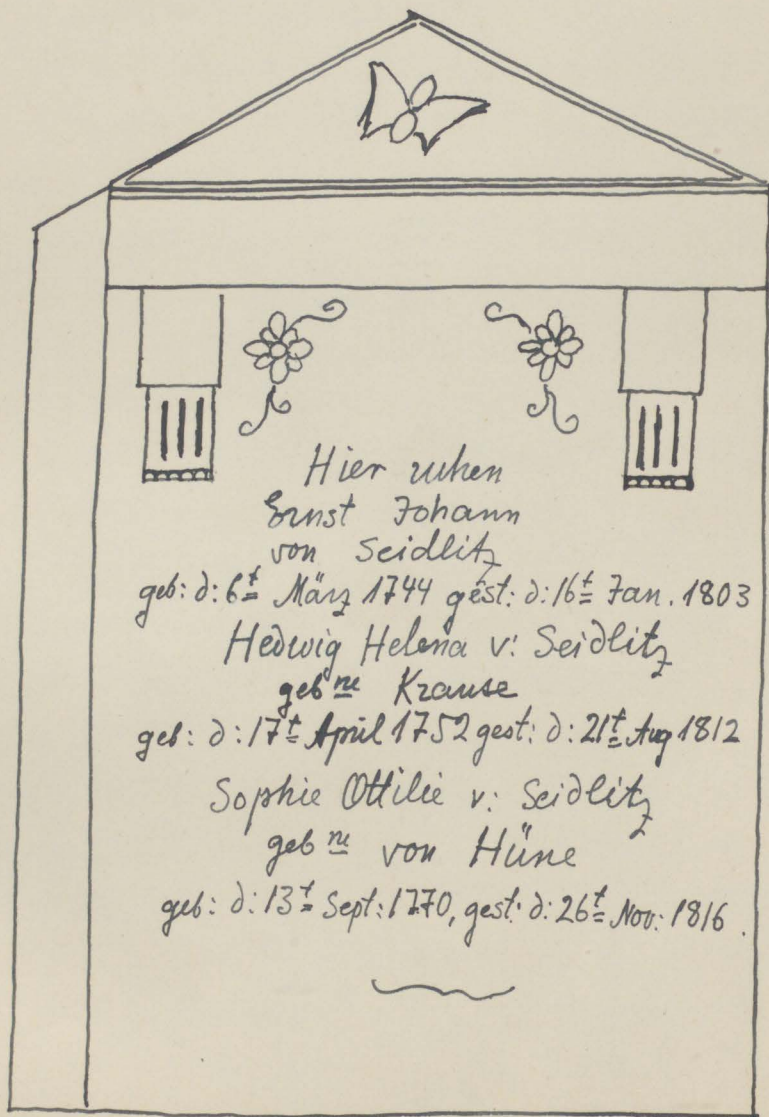 Hier ruhen
Ernst Johann
von Seidlitz
geb: d: 6t März 1744 gest: d: 16t Jan. 1803
Hedwig Helena v: Seidlitz
gebne Krause
geb: d: 17t April 1752 gest: d: 21t Aug 1812
Sophie Ottilie v: Seidlitz
gebne von Hüne
geb: d: 13t Sept: 1770, gest: d: 26t Nov: 1816.